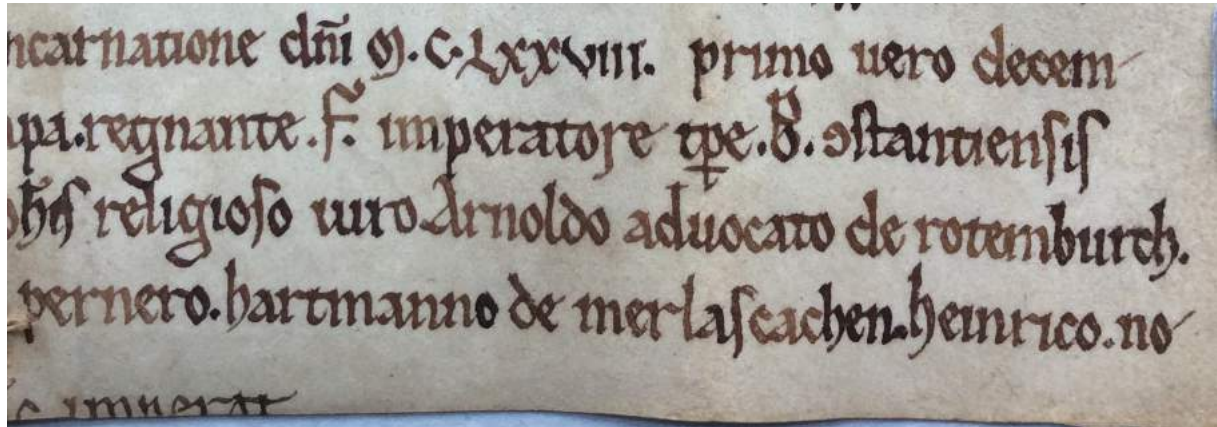 ncarnatione dn̄i M.C.LXXVIII. primo uero decem-
apa.regnante.F. imperatore tp̄e.B̄. ꝯstantiensis
religioso uiro Arnoldo aduocato de rotemburch.
pernero.hartmanno de merlascachen.heinrico.no-